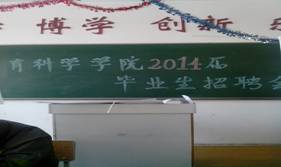 博学 创新
育科学学院2014届
毕业生招聘会